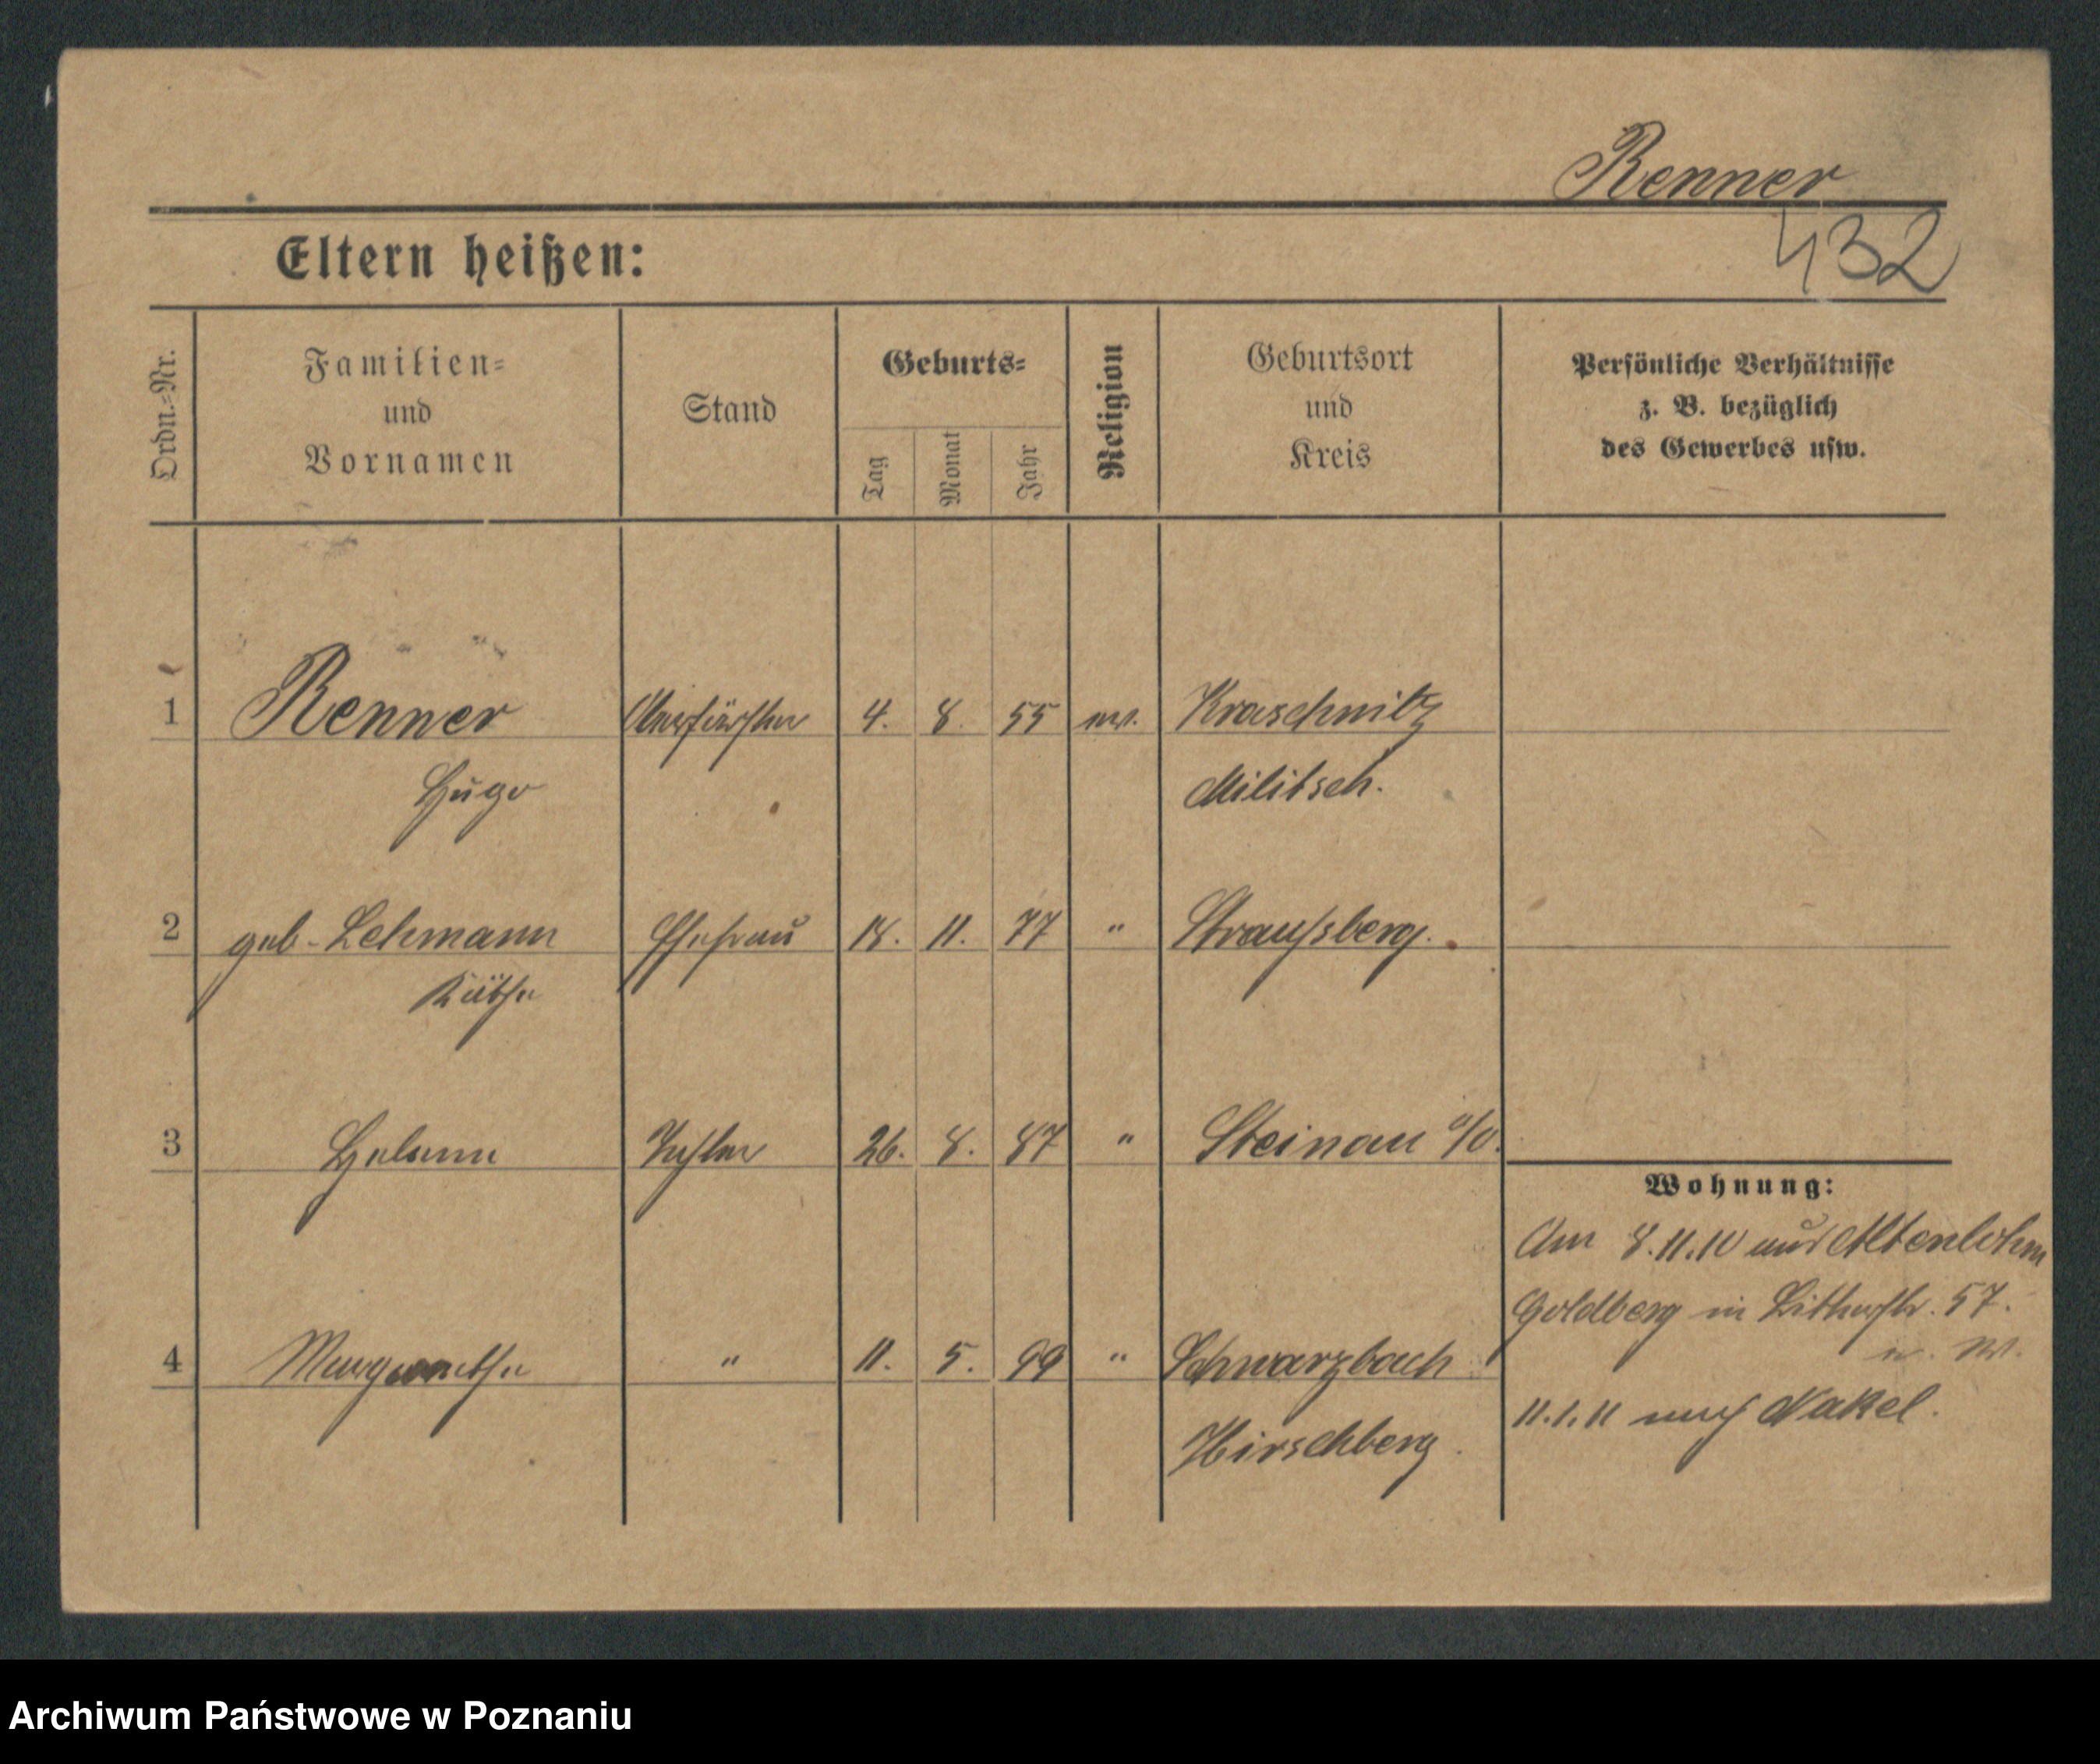 Renner
432
Eltern heißen:
Ordn.-Nr.
Familien-
und
Vornamen
Stand
Geburts-
Tag
Monat
Jahr
Religion
Geburtsort
und
Kreis
Persönliche Verhältnisse
z. B. bezüglich
des Gewerbes usw.
1 Renner Oberförster 4. 8. 55 ev. Kraschnitz
Hugo Militsch.
2 geb. Lehmann Ehefrau 18. 11. 77 " Straußberg.
Käthe
3 Helene Tochter 26. 8. 87 " Steinau a/O.
Wohnung:
Am 8.11.10 aus Altenlohm
Goldberg in Bitterstr. 57.
4 Margarethe " 11. 5. 99 " Schwarzbach
Hirschberg.
11.1.11 nach Nakel.
Archiwum Państwowe w Poznaniu